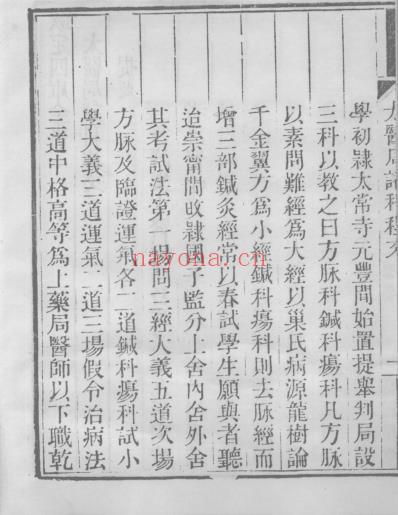 太醫局諸科程文
學初隸太常寺元豐間始置提舉判局設
三科以教之曰方脉科鍼科瘍科凡方脉
以素問難經爲大經以巢氏病源龍樹論
千金翼方爲小經鍼科瘍科則去脉經而
增三部鍼灸經常以春試學生願與者聽
迨崇甯間改隸國子監分上舍內舍外舍
其考試法第一場問三經大義五道次場
方脉及臨證運氣各二道鍼科瘍科試小
學大義三道運氣二道三場假令治病法
三道中格高等爲上藥局醫師以下職乾
nayona.cn